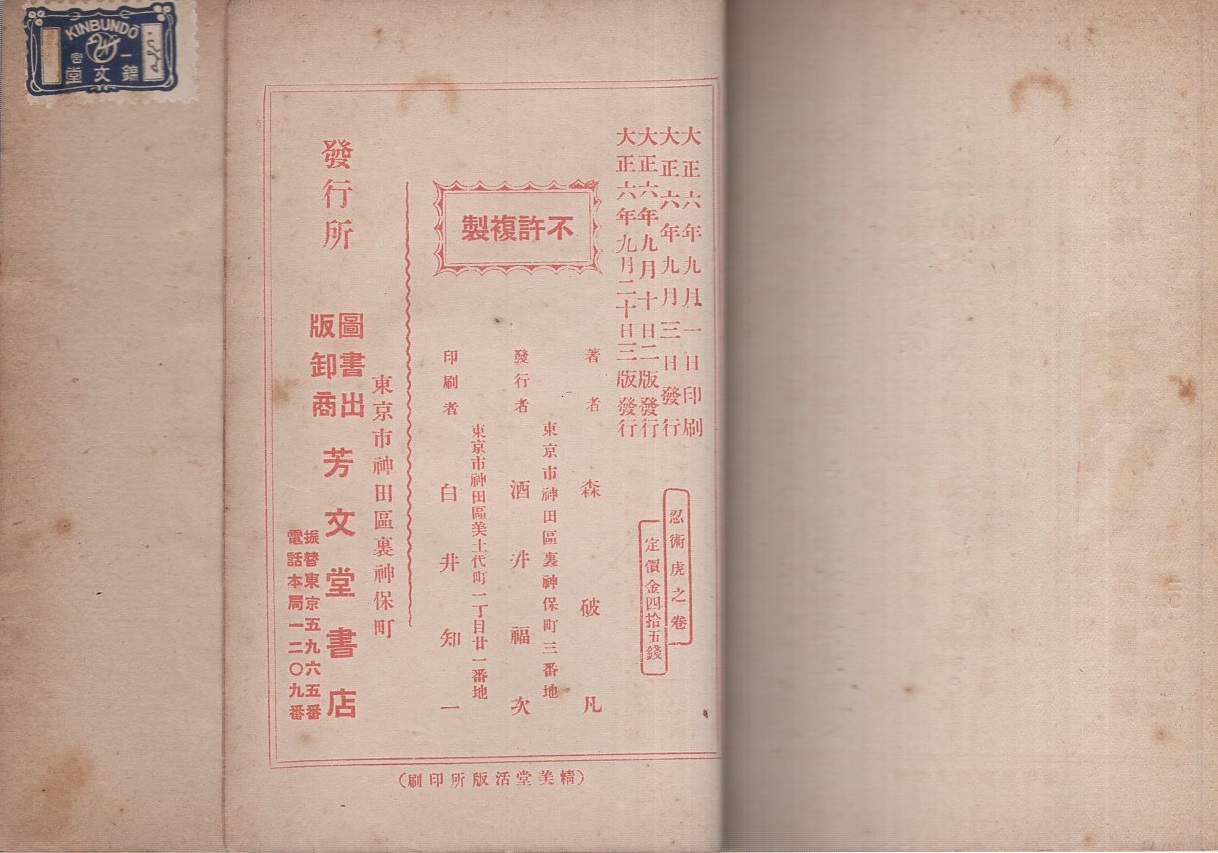 大正六年九月一日印刷
大正六年九月三日發行
大正六年九月十日二版發行
大正六年九月二十日三版發行
忍術虎之卷
定價金四拾五錢
不許複製
著者 森破凡
東京市神田區裏神保町三番地
發行者 酒井福次
東京市神田區美土代町二丁目廿一番地
印刷者 白井知一
東京市神田區裏神保町
發行所 圖書出版卸商 芳文堂書店
振替東京五九六五番
電話本局一二〇九番
(精美堂活版所印刷)
KINBUNDŌ
錦文堂